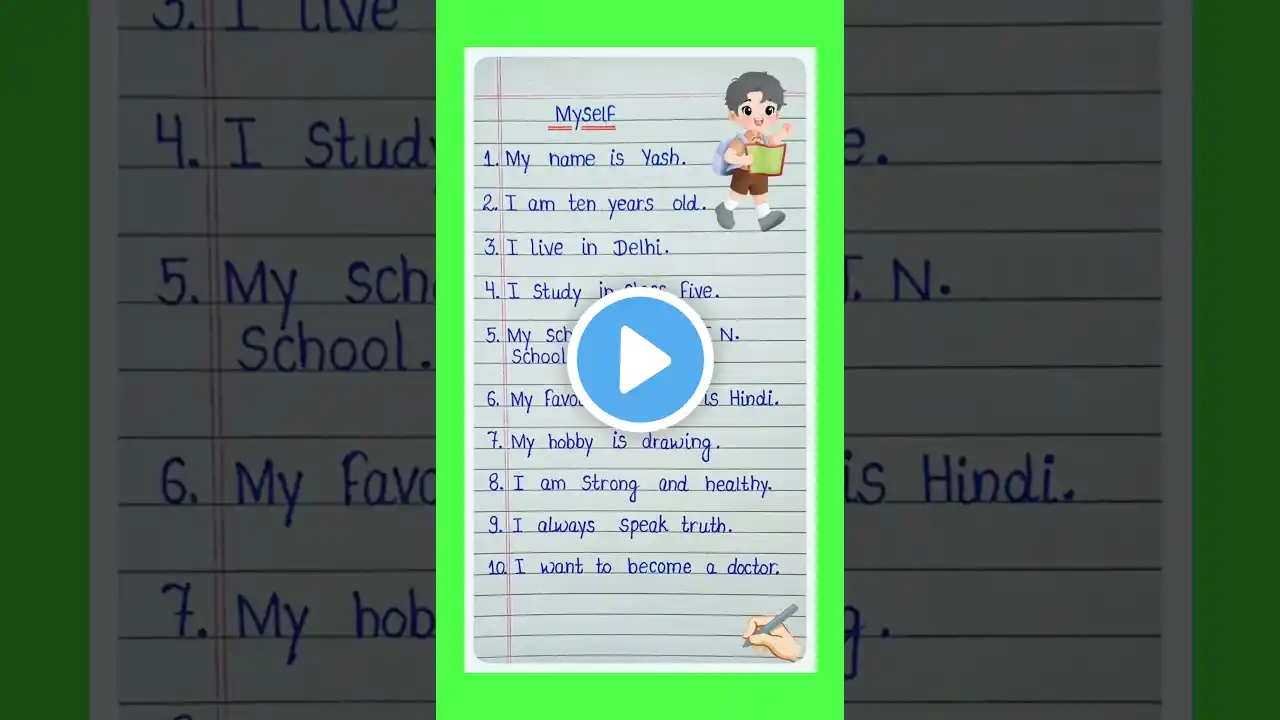 Myself
1. My name is Yash.
2. I am ten years old.
3. I live in Delhi.
4. I Study in class five.
5. My N.
School
6. My is Hindi.
7. My hobby is drawing.
8. I am Strong and healthy.
9. I always speak truth.
10. I want to become a doctor.